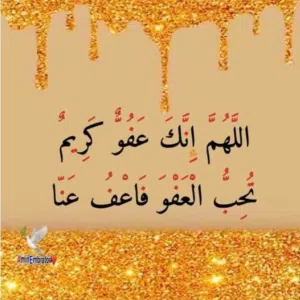 اللَّهُمَّ إِنَّكَ عَفُوٌّ كَرِيمٌ
تُحِبُّ الْعَفْوَ فَاعْفُ عَنَّا